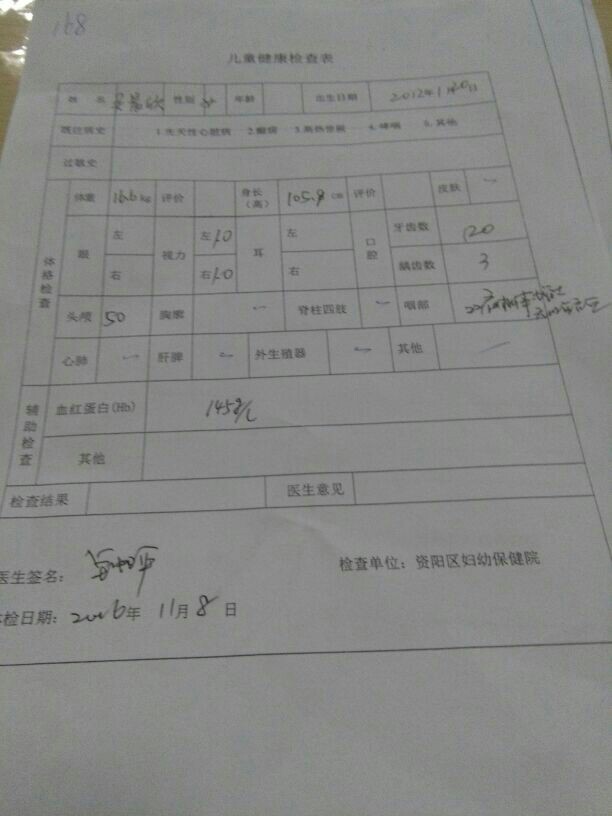 168
儿童健康检查表
姓 名 性别 女 年龄 出生日期 2012年1月20日
既往病史 1.先天性心脏病 2.癫痫 3.高热惊厥 4.哮喘 5.其他
过敏史
体格检查
体重 16.6 kg 评价 身长(高) 105.9 cm 评价 皮肤 -
眼 左 视力 左1.0 耳 左 口腔 牙齿数 20
右 右1.0 右 龋齿数 3
头颅 50 胸廓 - 脊柱四肢 - 咽部
心肺 - 肝脾 - 外生殖器 - 其他 -
辅助检查
血红蛋白(Hb) 145g/L
其他
检查结果 医生意见
医生签名: 检查单位: 资阳区妇幼保健院
体检日期: 2016年 11月 8日